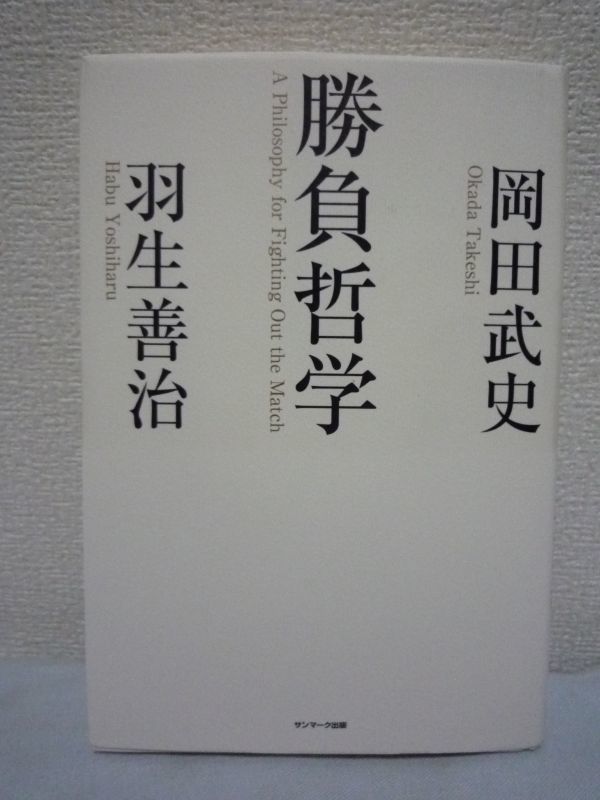 岡田武史
Okada Takeshi
勝負哲学
A Philosophy for Fighting Out the Match
羽生善治
Habu Yoshiharu
サンマーク出版